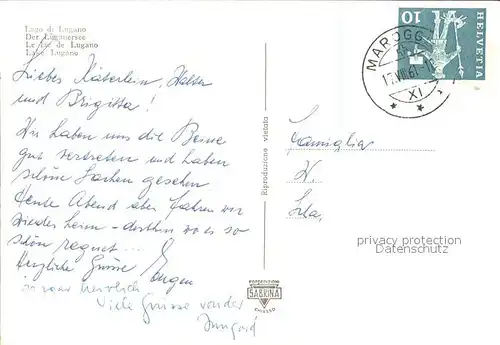 Lago di Lugano
Der Luganersee
Le lac de Lugano
Lake Lugano
Liebes Käterlein, Walter
und Brigitta!
Wir haben uns die Beine
gut vertreten und haben
schöne Sachen gesehen
Heute Abend aber fahren wir
wieder heim - dorthin wo es so
schön regnet ...
Herzliche Grüsse Eugen
herrlich
Viele Grüsse von der
Irmgard
Riproduzione vietata
SABRINA
CHIASSO
HELVETIA
10
MAROGG
XI
Famiglia
W.
privacy protection
Datenschutz